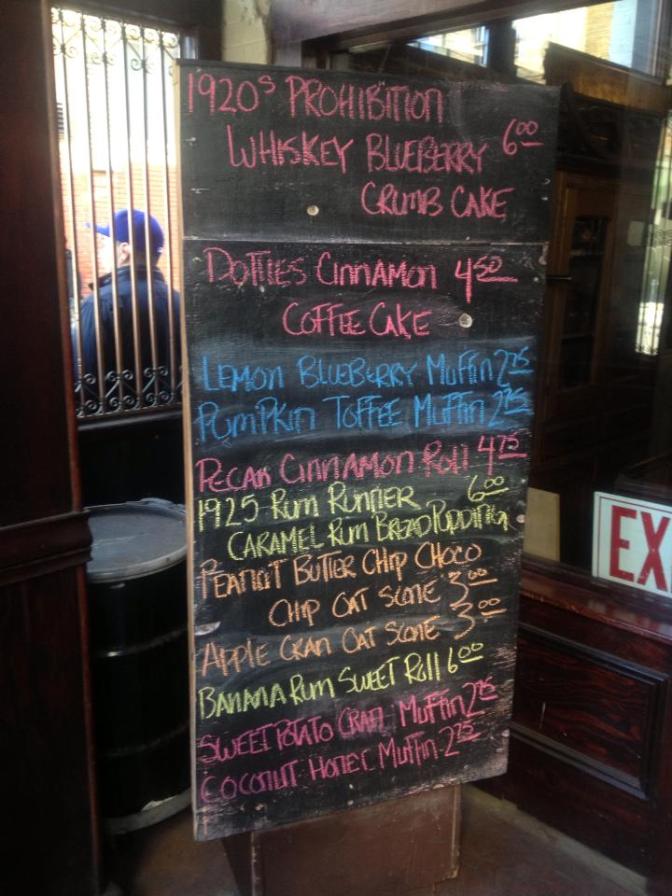 1920s PROHIBITION
WHISKEY BLUEBERRY 6.00
CRUMB CAKE
DOTTIES CINNAMON 4.50
COFFEE CAKE
LEMON BLUEBERRY MUFFIN 2.75
PUMPKIN TOFFEE MUFFIN 2.75
PECAN CINNAMON ROLL 4.75
1925 RUM RUNNER 6.00
CARAMEL RUM BREAD PUDDING
PEANUT BUTTER CHIP CHOCO
CHIP OAT SCONE 3.00
APPLE CRAN OAT SCONE 3.00
BANANA RUM SWEET ROLL 6.00
SWEET POTATO CRAN. MUFFIN 2.75
COCONUT HONEY MUFFIN 2.75
EX